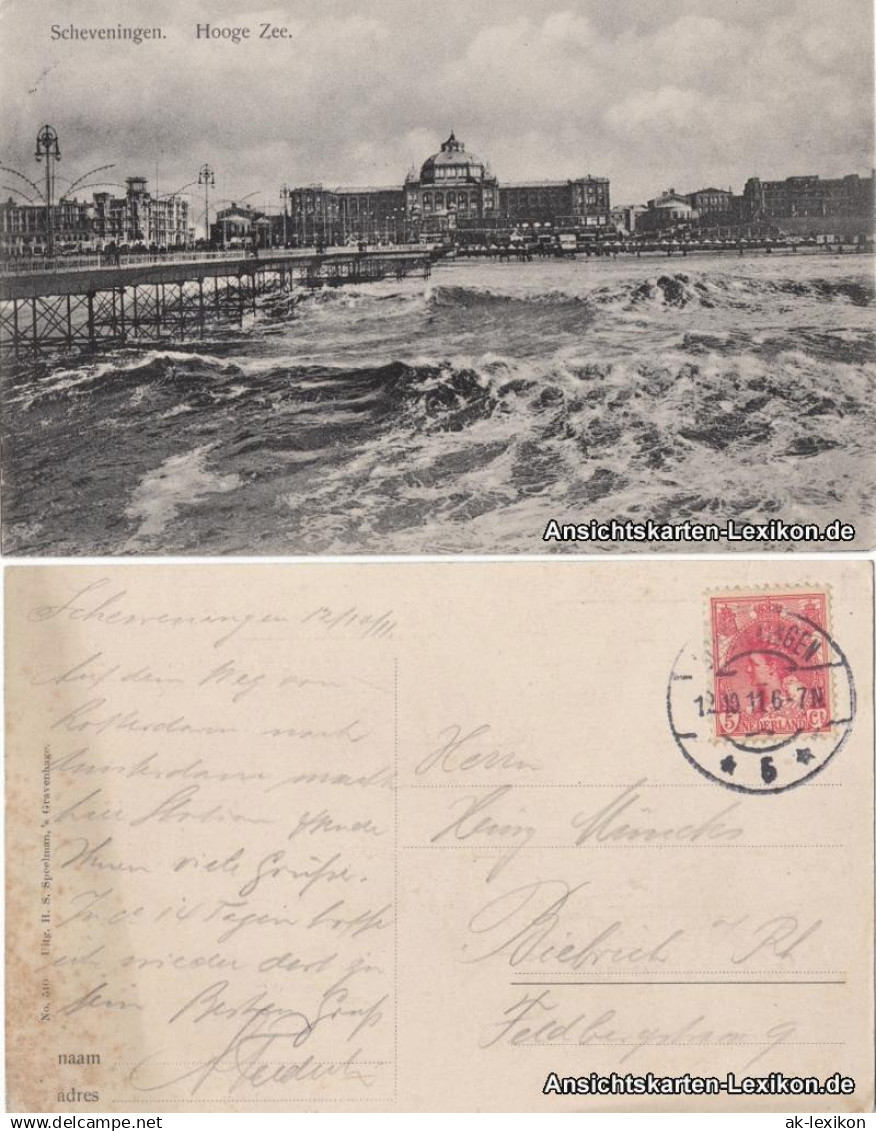 Scheveningen. Hooge Zee.
Ansichtskarten-Lexikon.de
Scheveningen 12/10/11.
Auf dem Weg von
Rotterdam nach
Amsterdam mache
hier Station sende
Ihnen viele Grüße.
In ca 14 Tagen hoffe
ich wieder dort zu
sein Besten Gruß
naam
adres
No. 510 Uitg. H. S. Speelman, 's Gravenhage.
12.10.11 6-7N
5
5 NEDERLAND Ct
Herrn
Heinz
Biebrich Rh
9
Ansichtskarten-Lexikon.de
ak-lexikon